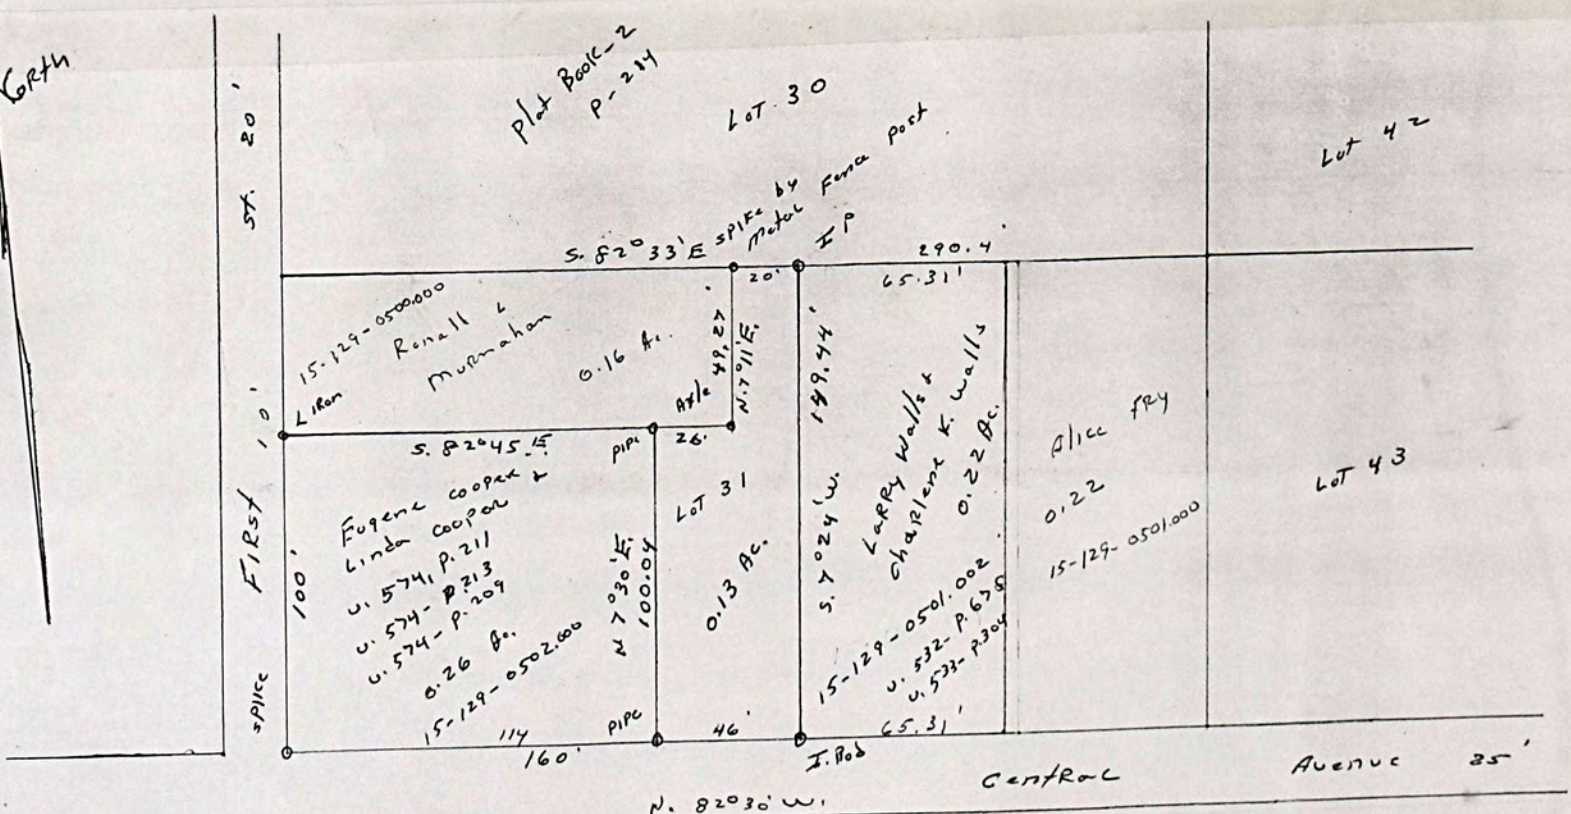 North
Plat Book-2
P-284
Lot 30
Lot 42
St. 20'
S. 82° 33' E
Spike by
Metal Fence post
I P
290.4'
20'
65.31'
15-129-0500.000
Ronall L
Murnahan
0.16 Ac.
L Iron
10'
Axle
49.27'
N. 7° 11' E.
149.44'
S. 7° 24' W.
S. 82° 45' E.
pipe
26.
Eugene Cooper &
Linda Cooper
v. 574, P. 211
v. 574- P. 213
v. 574- P. 209
0.26 Ac.
15-129-0502.000
First
100'
Spike
N 7° 30' E.
100.04
Lot 31
0.13 Ac.
Larry Walls &
Charlene K. Walls
0.22 Ac.
15-129-0501.002
v. 532- P. 675
v. 533- P. 304
Alice Fry
0.22
15-129-0501.000
Lot 43
114
pipe
46'
65.31'
160'
I. Rod
N. 82° 30' W.
Central Avenue 25'